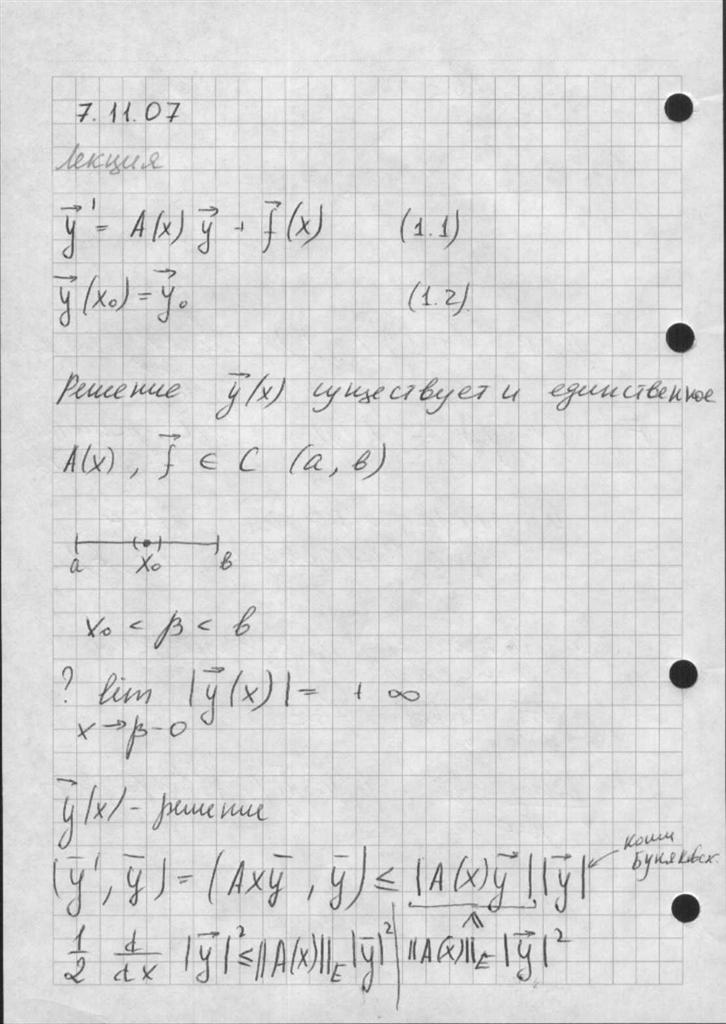 7.11.07
Лекция
y⃗' = A(x) y⃗ + f⃗(x) (1.1)
y⃗(x₀) = y⃗₀ (1.2)
Решение y⃗(x) существует и единственное
A(x), f⃗ ∈ C (a, в)
a x₀ в
x₀ < β < в
? lim |y⃗(x)| = + ∞
x → β-0
y⃗(x) - решение
(y⃗', y̅) = (Axy̅, y̅) ≤ |A(x)y⃗||y⃗| ← Коши Буняковск.
1/2 d/dx |y⃗|² ≤ ||A(x)||_E |y̅|² | ||A(x)||_E |y⃗|²